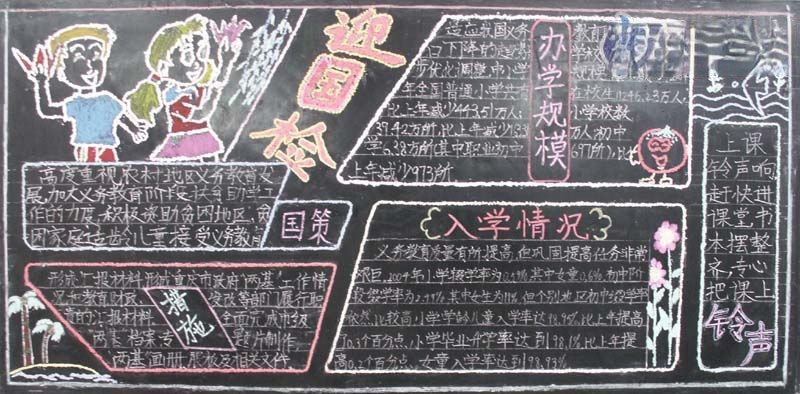 迎国检
高度重视农村地区义务教育发
展,加大义务教育阶段扶贫助学工
作的力度,积极资助贫困地区,贫
困家庭适龄儿童接受义务教育
国策
形成汇报材料,形成重庆市政府"两基"工作情
况和教育财政 发改等部门履行职
责的汇报材料 全面完成市级
两基"档案专 题片制作,
两基"画册,展板及相关文件.
措施
办学规模
适应我国义务 教育
口下降的趋势 学校
步优化调整.中小学 规模
年全国普通小学共有 在校生
比上年减少443.51万人; 小学校数
39.42万所,比上年减少 万人.初中
学6.38万所(其中职业初中 697所),比
上年减少973所
入学情况
义务教育质量有所提高,但巩固提高任务非常
艰巨.2004年小学辍学率为0.59%,其中女童0.6%,初中阶
段辍学率为2.49%,其中女生为 但个别地区初中辍学率
依然比较高.小学学龄儿童入学率达98.95%,比上年提高
了0.3个百分点.小学毕业升学率达到98.1%,比上年提
高0.2个百分点.女童入学率达到98.93%
上课
铃声响,
赶快进
课堂,书
本摆整
齐,专心
把课上
铃声